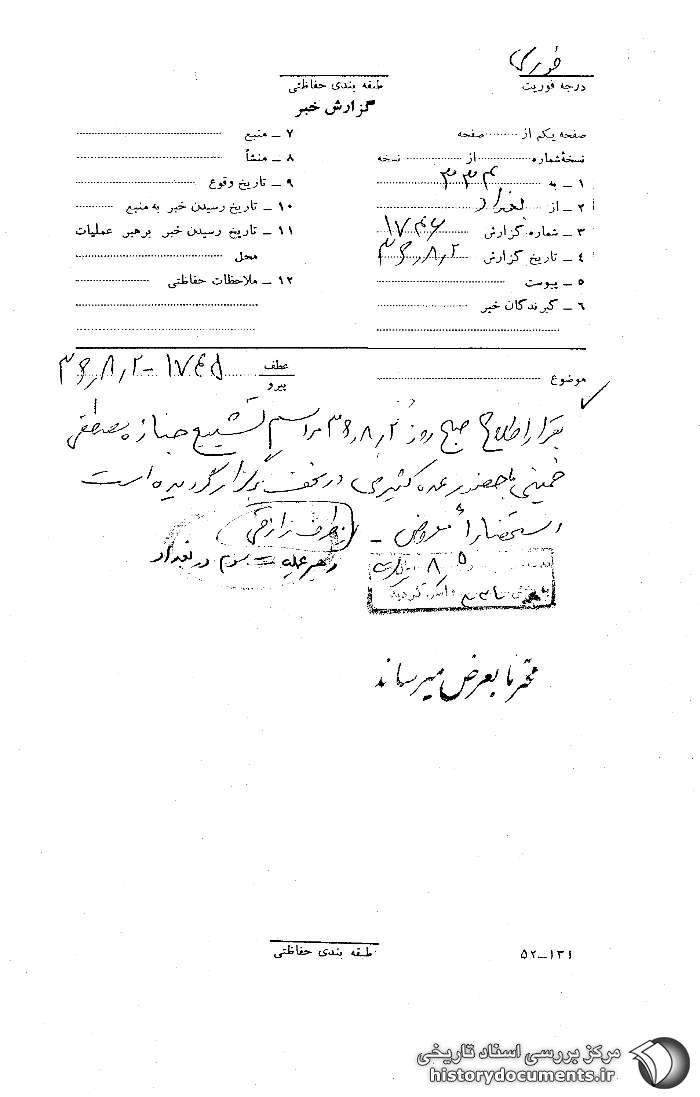 فوری
درجه فوریت
طبقه بندی حفاظتی
گزارش خبر
صفحه یکم از ........ صفحه
نسخهٔ شماره ........ از ........ نسخه
۱ – به ۳۳۴
۲ – از بغداد
۳ – شماره گزارش ۱۷۴۶
۴ – تاریخ گزارش ۳۶٫۸٫۲
۵ – پیوست
۶ – گیرندگان خبر
۷ – منبع
۸ – منشأ
۹ – تاریخ وقوع
۱۰ – تاریخ رسیدن خبر به منبع
۱۱ – تاریخ رسیدن خبر برهبر عملیات
محل
۱۲ – ملاحظات حفاظتی
موضوع
عطف
پیرو
۱۷۴۵ – ۳۶٫۸٫۲
بقرار اطلاع صبح روز ۳۶٫۸٫۲ مراسم تشییع جنازه مصطفی
خمینی با حضور عده کثیری در نجف برگزار گردیده است
استحضاراً معروض –
از طرف زارعی
رهبر عملیات سوم در بغداد
محترما بعرض میرساند
طبقه بندی حفاظتی
۵۲–۱۳۱
مرکز بررسی اسناد تاریخی
historydocuments.ir